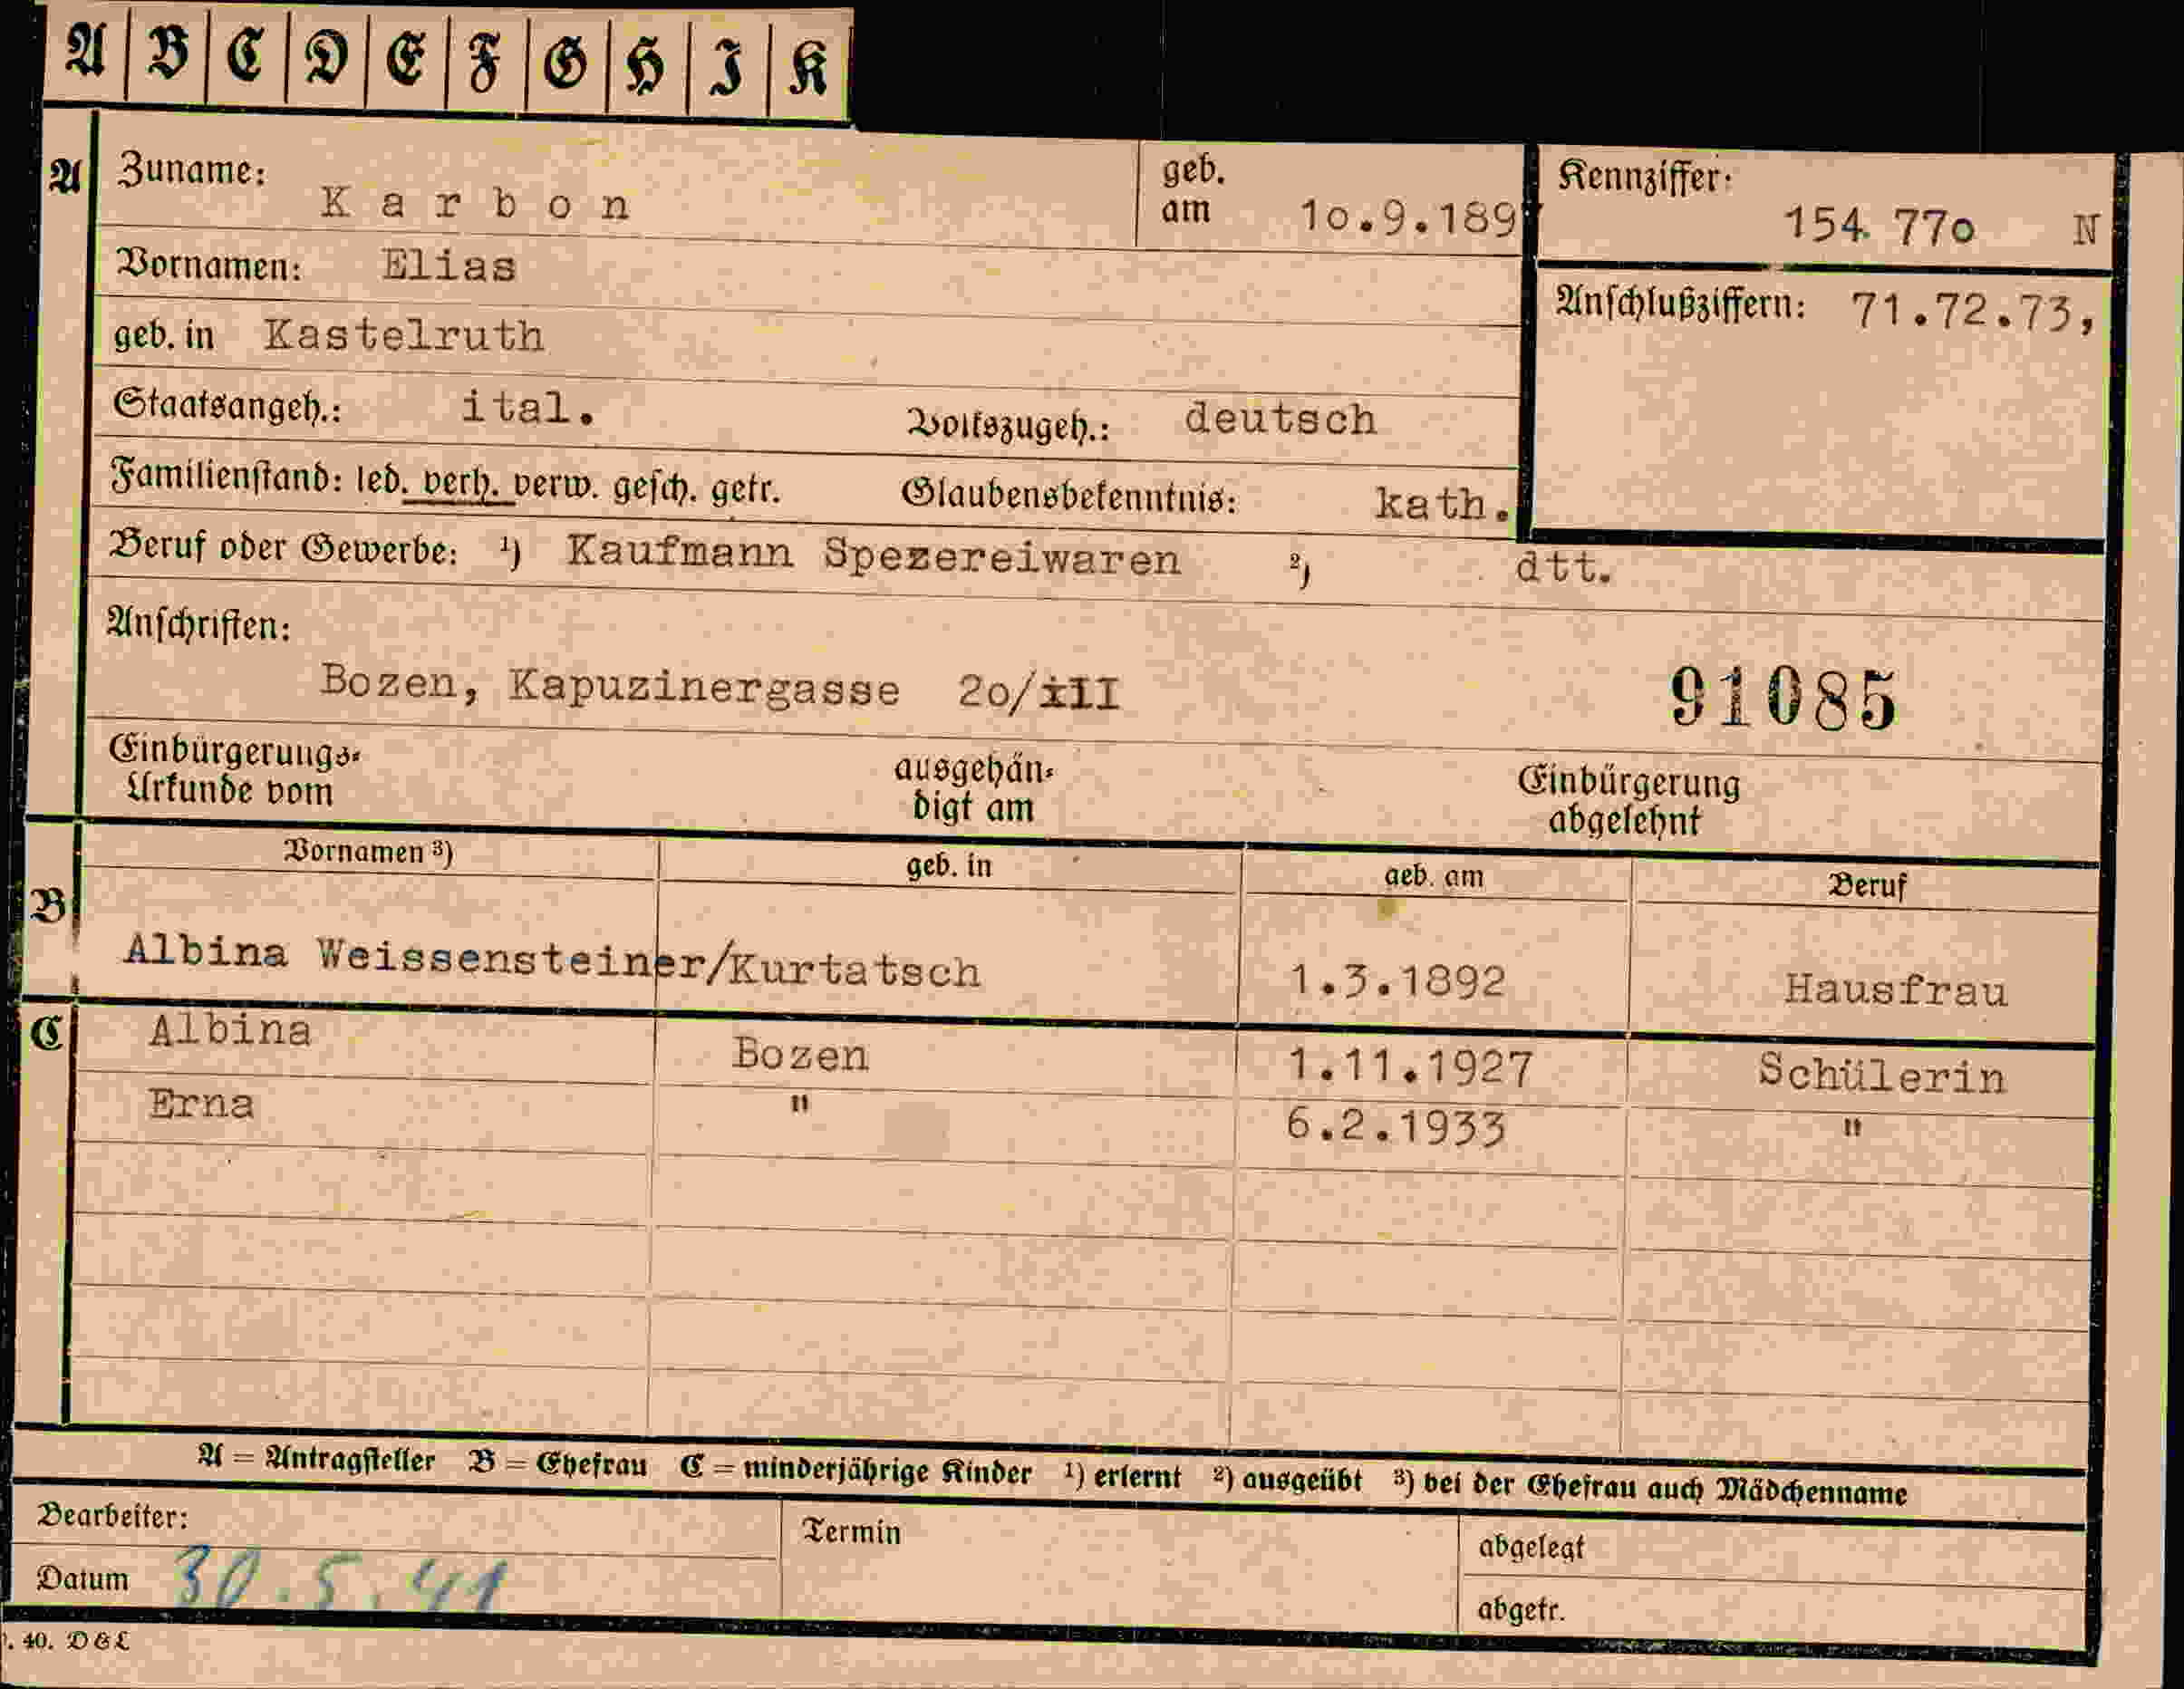 A B C D E F G H I K
A Zuname: Karbon geb. am 10.9.189 Kennziffer: 154.770 N
Vornamen: Elias
Anschlußziffern: 71.72.73,
geb. in Kastelruth
Staatsangeh.: ital. Volkszugeh.: deutsch
Familienstand: led. verh. verw. gesch. getr. Glaubensbekenntnis: kath.
Beruf oder Gewerbe: ¹) Kaufmann Spezereiwaren ²) dtt.
Anschriften:
Bozen, Kapuzinergasse 20/ 91085
Einbürgerungs-
Urkunde vom
ausgehän-
digt am
Einbürgerung
abgelehnt
Vornamen ³) geb. in geb. am Beruf
B Albina Weissensteiner/Kurtatsch 1.3.1892 Hausfrau
C Albina Bozen 1.11.1927 Schülerin
Erna " 6.2.1933 "
A = Antragsteller B = Ehefrau C = minderjährige Kinder ¹) erlernt ²) ausgeübt ³) bei der Ehefrau auch Mädchenname
Bearbeiter: Termin abgelegt
Datum 30.5.41 abgetr.
. 40. D & L